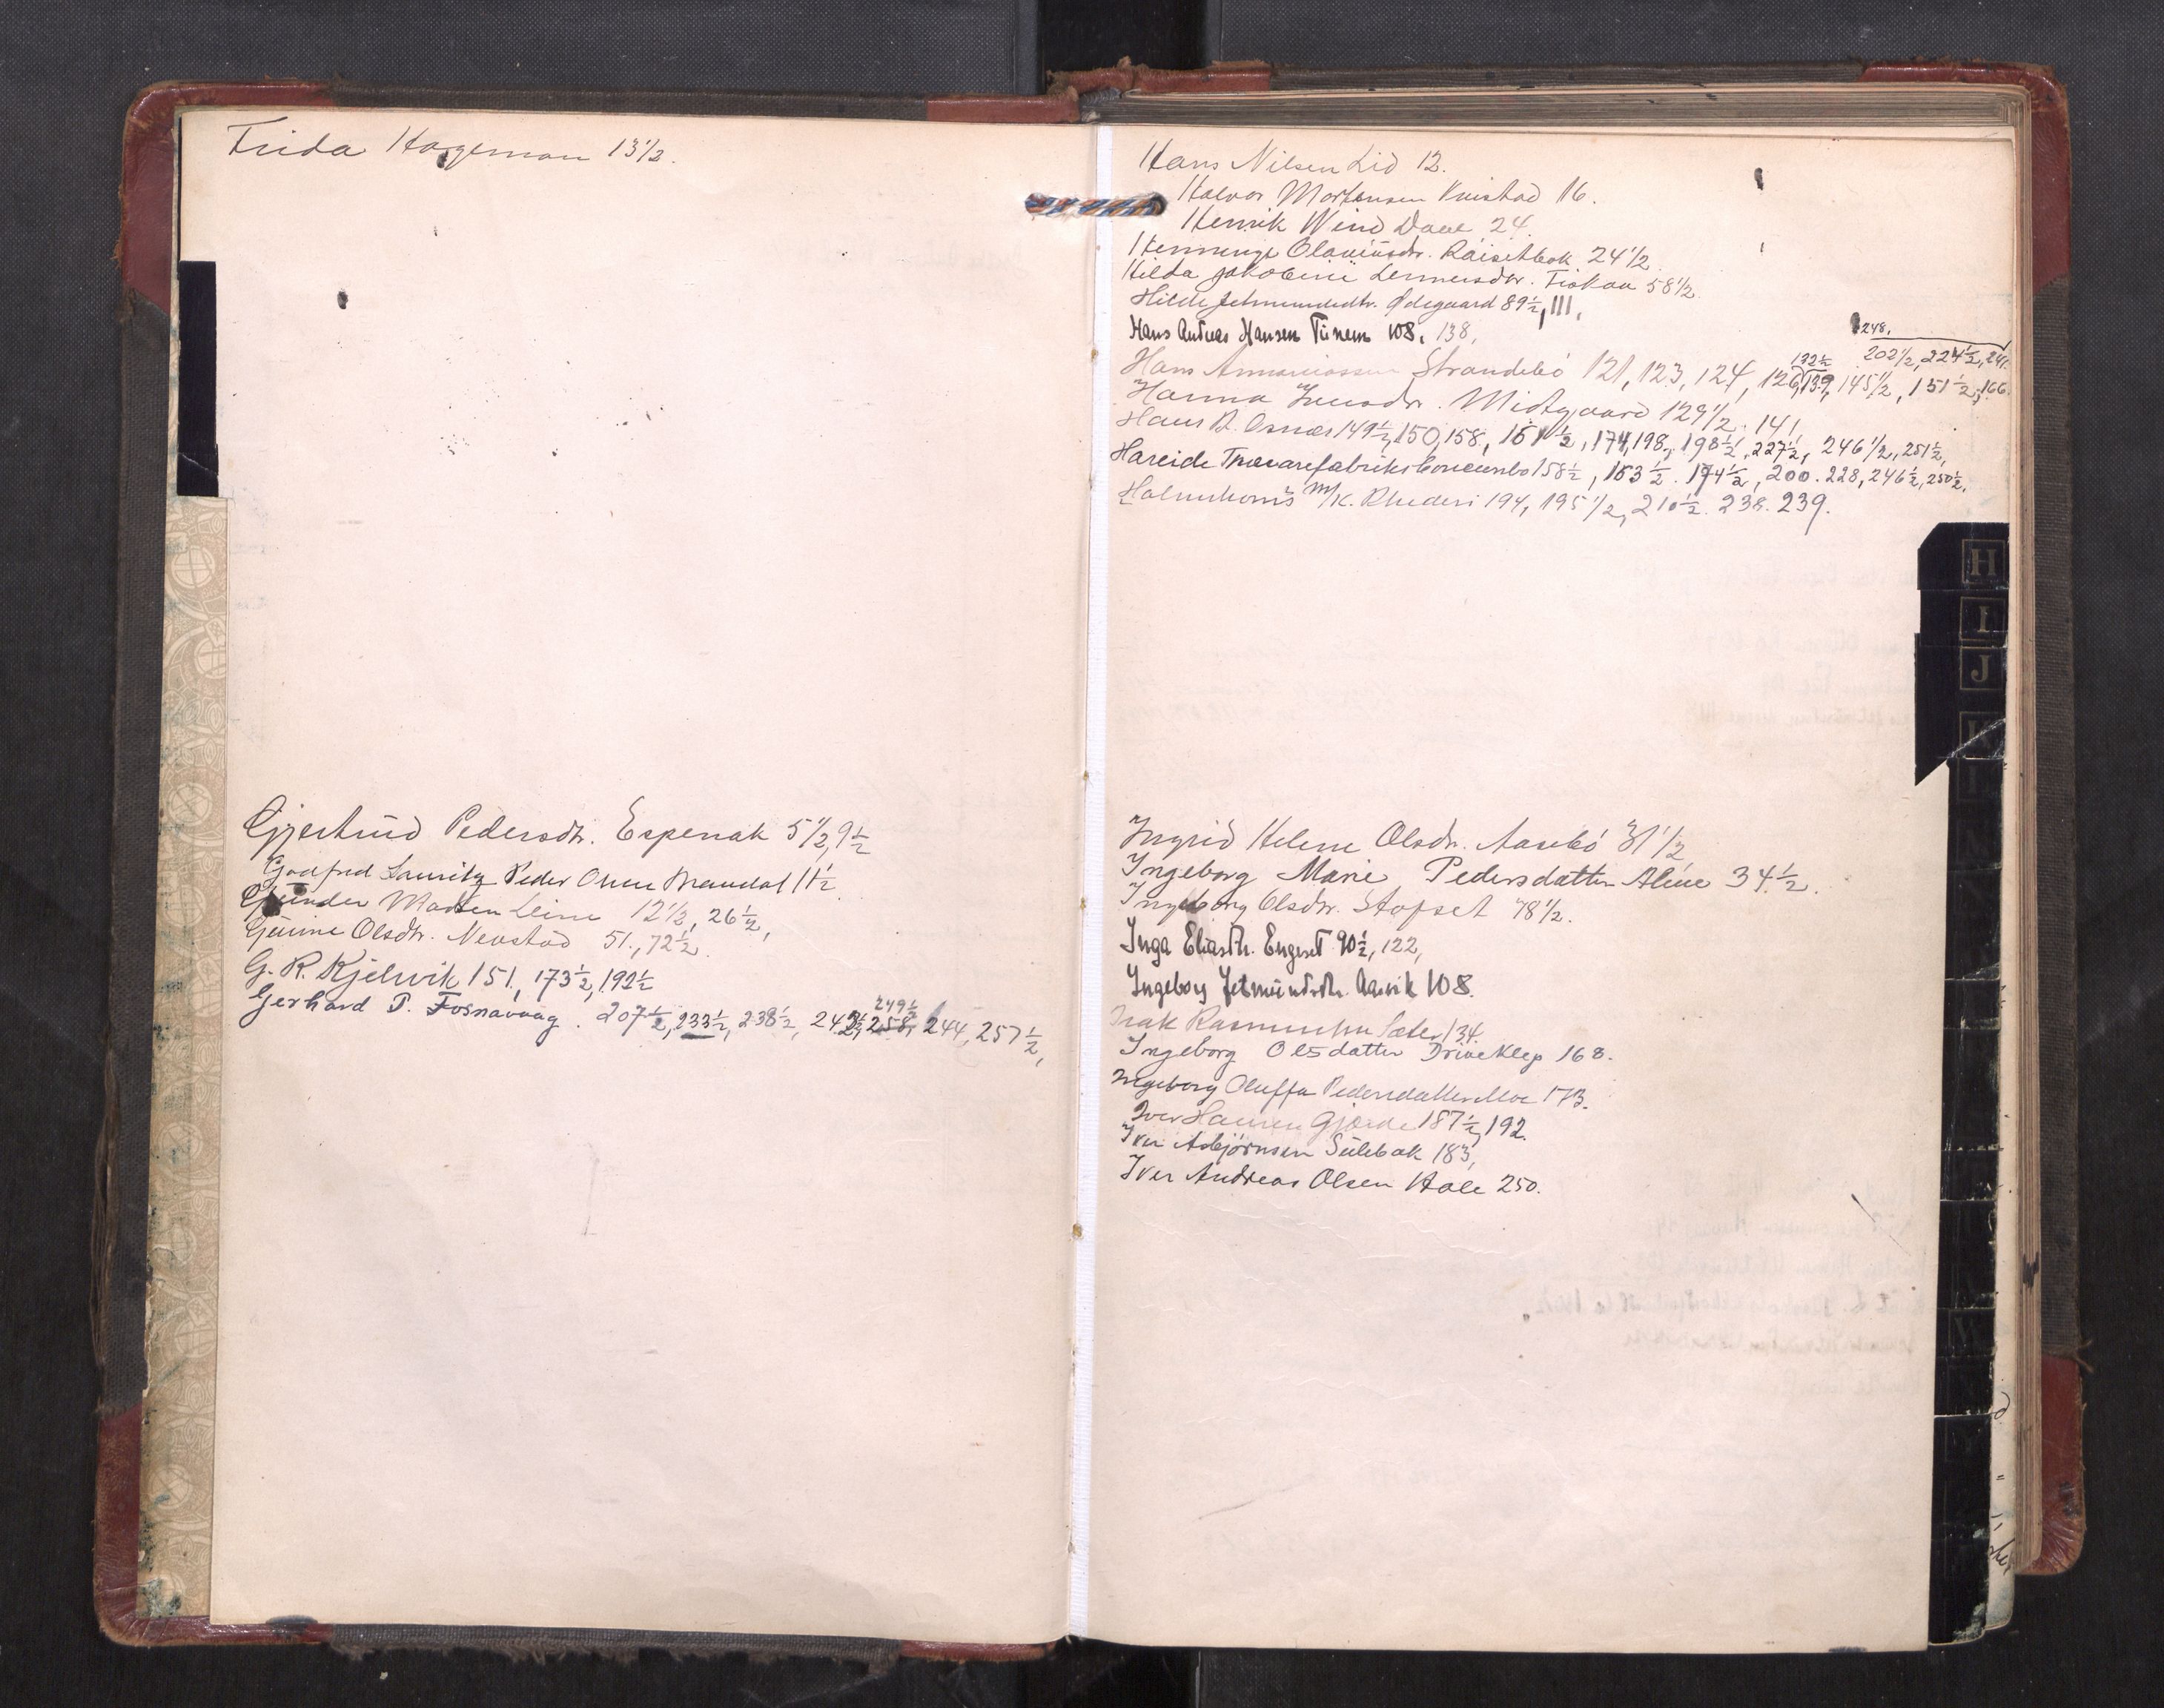 Frida Hageman 13 1/2.
Gjertrud Pedersdtr. Espenak 5 1/2, 9 1/2
Godfred Lauritz Peder Olsen Brandal 11 1/2
Madsen Leine 12 1/2, 26 1/2,
Gurine Olsdtr. Nevstad 51., 72 1/2.
G. R. Kjelvik 151, 173 1/2, 192 1/2
249 1/2
Gerhard P. Fosnavaag. 207 1/2, 233 1/2, 238 1/2, 242 1/2, 258, 244, 257 1/2,
Hans Nilsen Lid 12.
Halvor Mortensen 16.
Henrik Wind Daae 24.
Olaviusdtr. Raisetbak 24 1/2.
Hilda Jakobine Fiskaa 58 1/2.
Hilde Jetmundsdtr. Ødegaard 89 1/2, 111,
Hans Andreas Hansen Tunem 108, 138,
248,
132 1/2 202 1/2, 224 1/2, 241
Hans Strandebö 121, 123, 124, 126, 139, 145 1/2, 151 1/2, 166
Hanna Jensdr. Midtgaard 129 1/2. 141
Hans A. Osnæs 149 1/2, 150, 158, 161 1/2, 174, 198, 198 1/2, 227 1/2, 246 1/2, 251 1/2,
Hareide Trævarefabriks 158 1/2, 163 1/2. 174 1/2, 200. 228, 246 1/2, 250 1/2.
M/K. Rhederi 194, 195 1/2, 210 1/2. 238. 239.
Ingrid Helene Olsdr. Aasebö 31 1/2,
Ingeborg Marie Pedersdatter Alme 34 1/2.
Ingeborg Olsdtr. Stofset 78 1/2.
Inga Eliasdtr. Engeset 90 1/2, 122,
Ingeborg Jetmundsdtr. Aarvik 108.
Isak Rasmussen Sæter 134.
Ingeborg Olsdatter Driveklep 168.
Ingeborg Oluffa Pedersdatter Moe 173.
Iver Hansen Gjærde 187 1/2, 192.
Iver Asbjørnsen Sulebak 183,
Iver Andreas Olsen Hole 250.
H
I
J
K